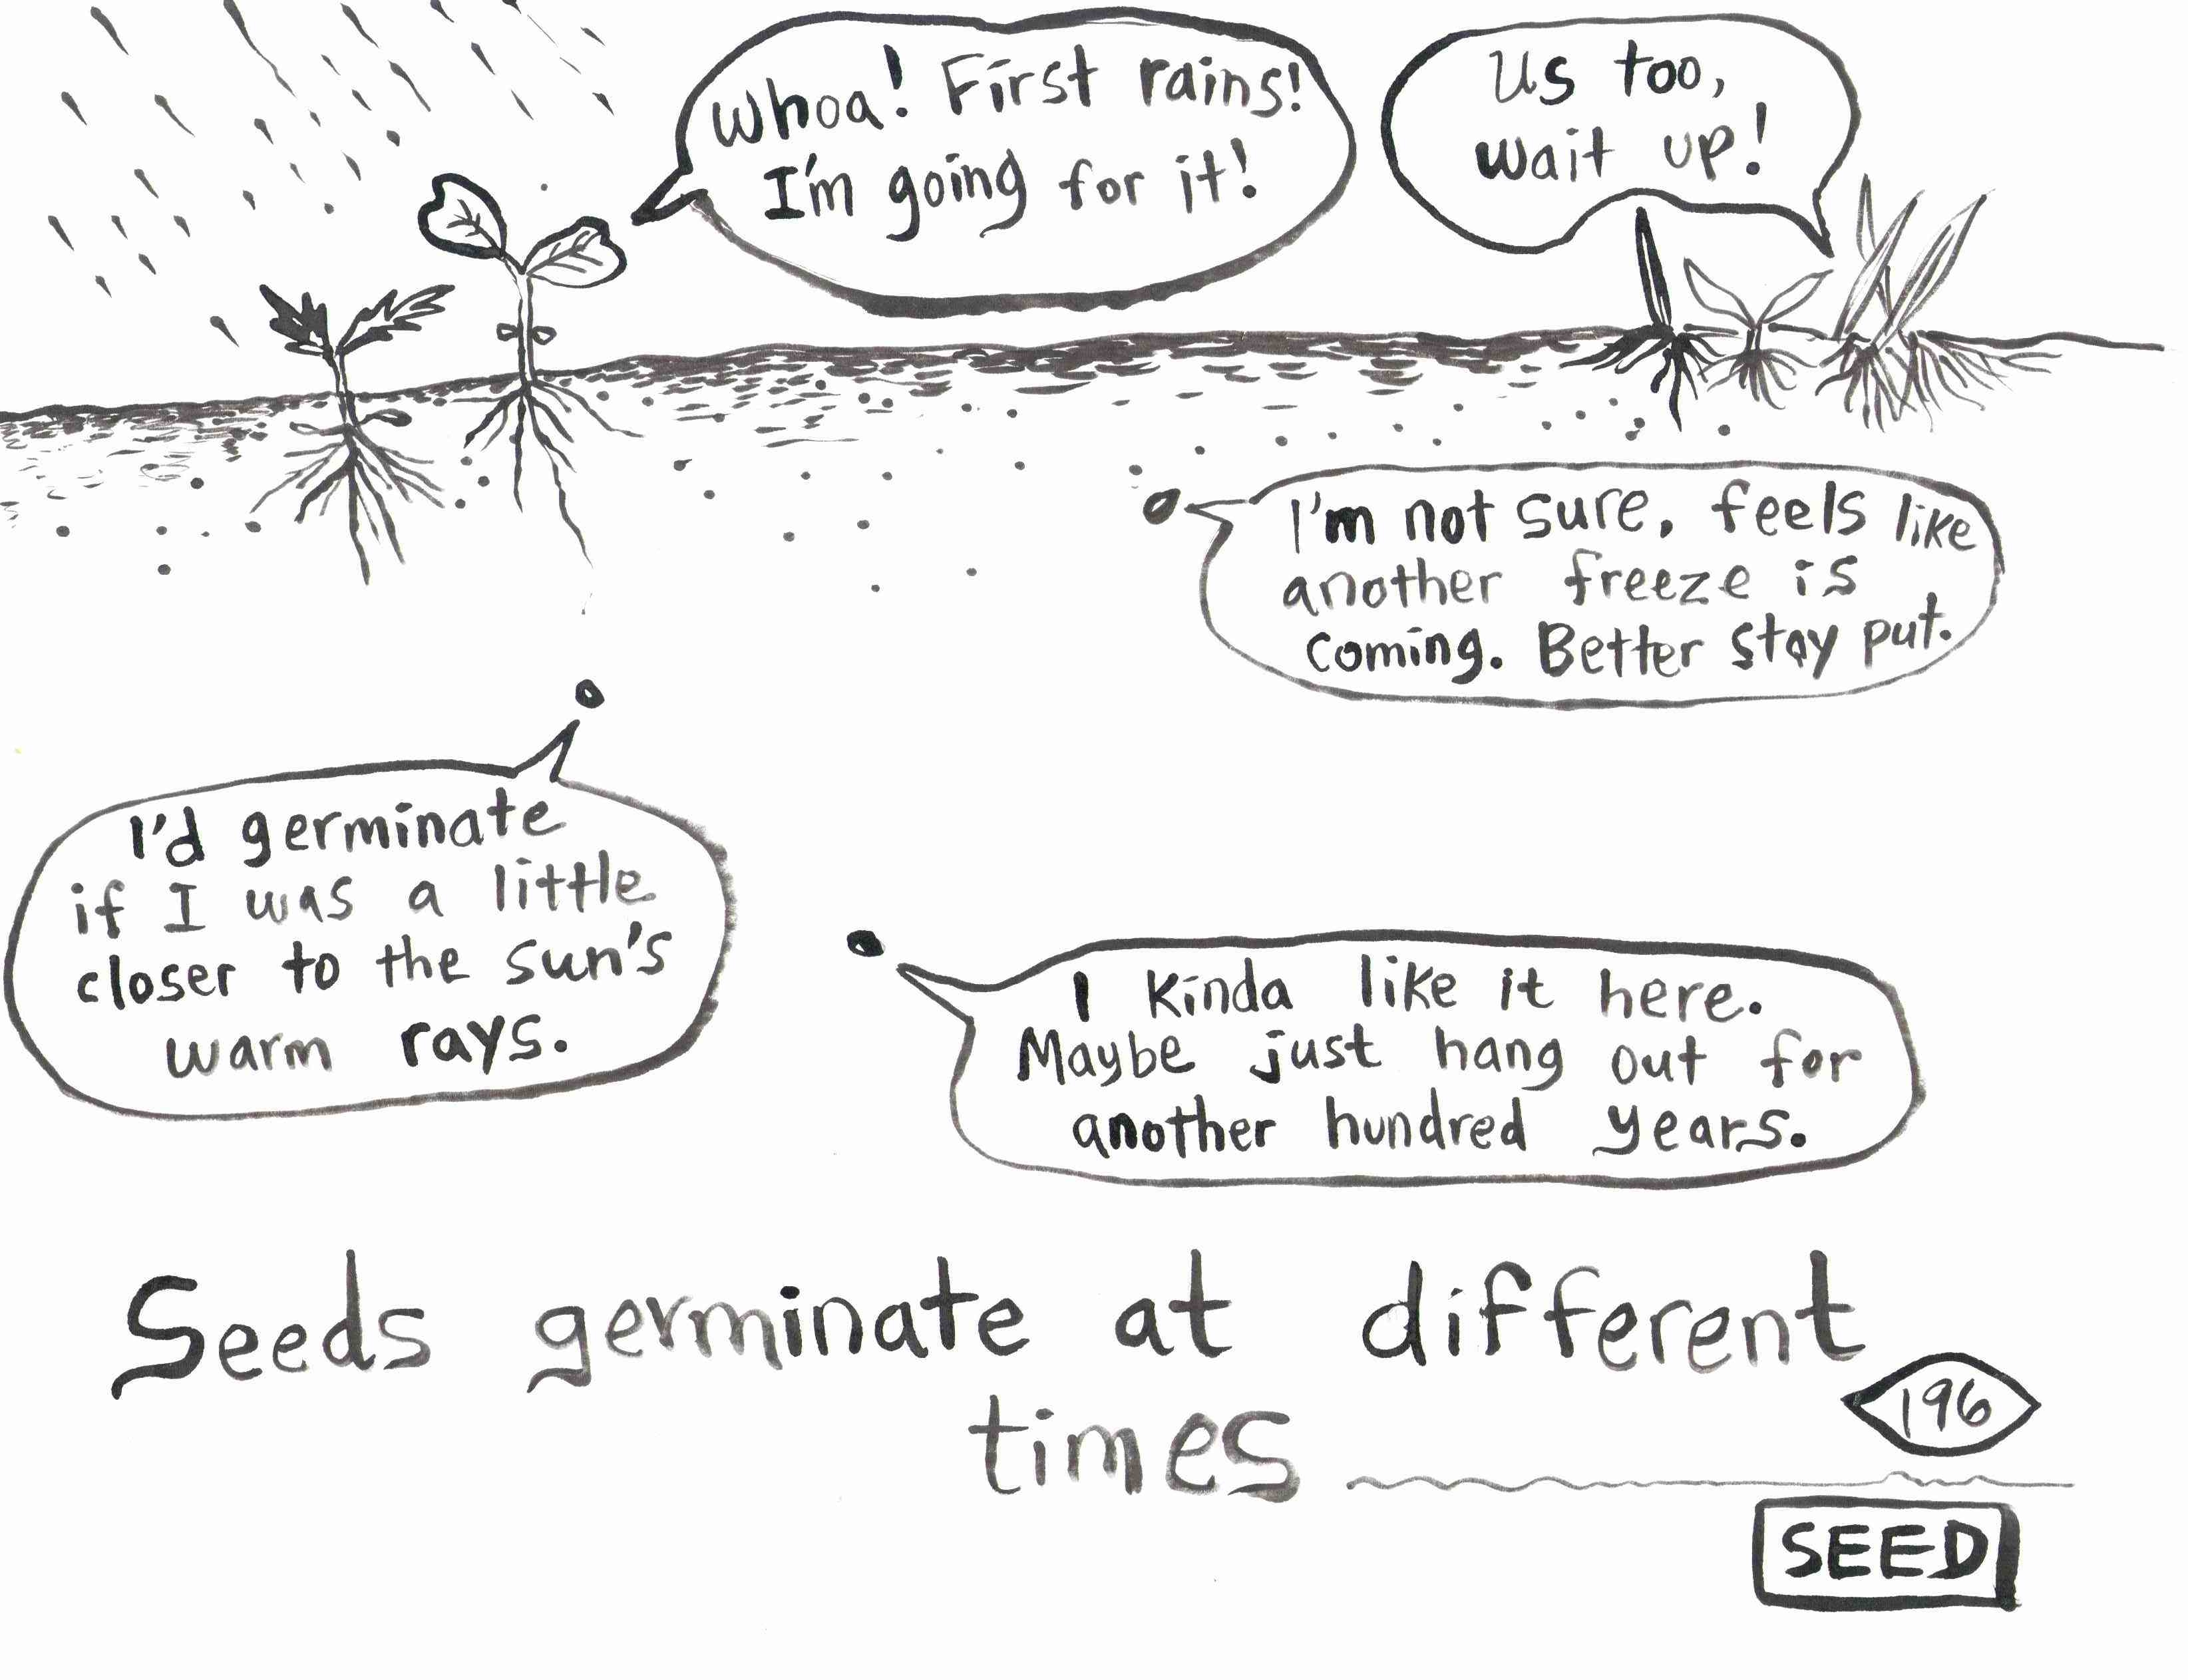 Whoa! First rains!
I'm going for it!
Us too,
wait up!
I'm not sure, feels like
another freeze is
coming. Better stay put.
I'd germinate
if I was a little
closer to the sun's
warm rays.
I kinda like it here.
Maybe just hang out for
another hundred years.
Seeds germinate at different
times
196
SEED